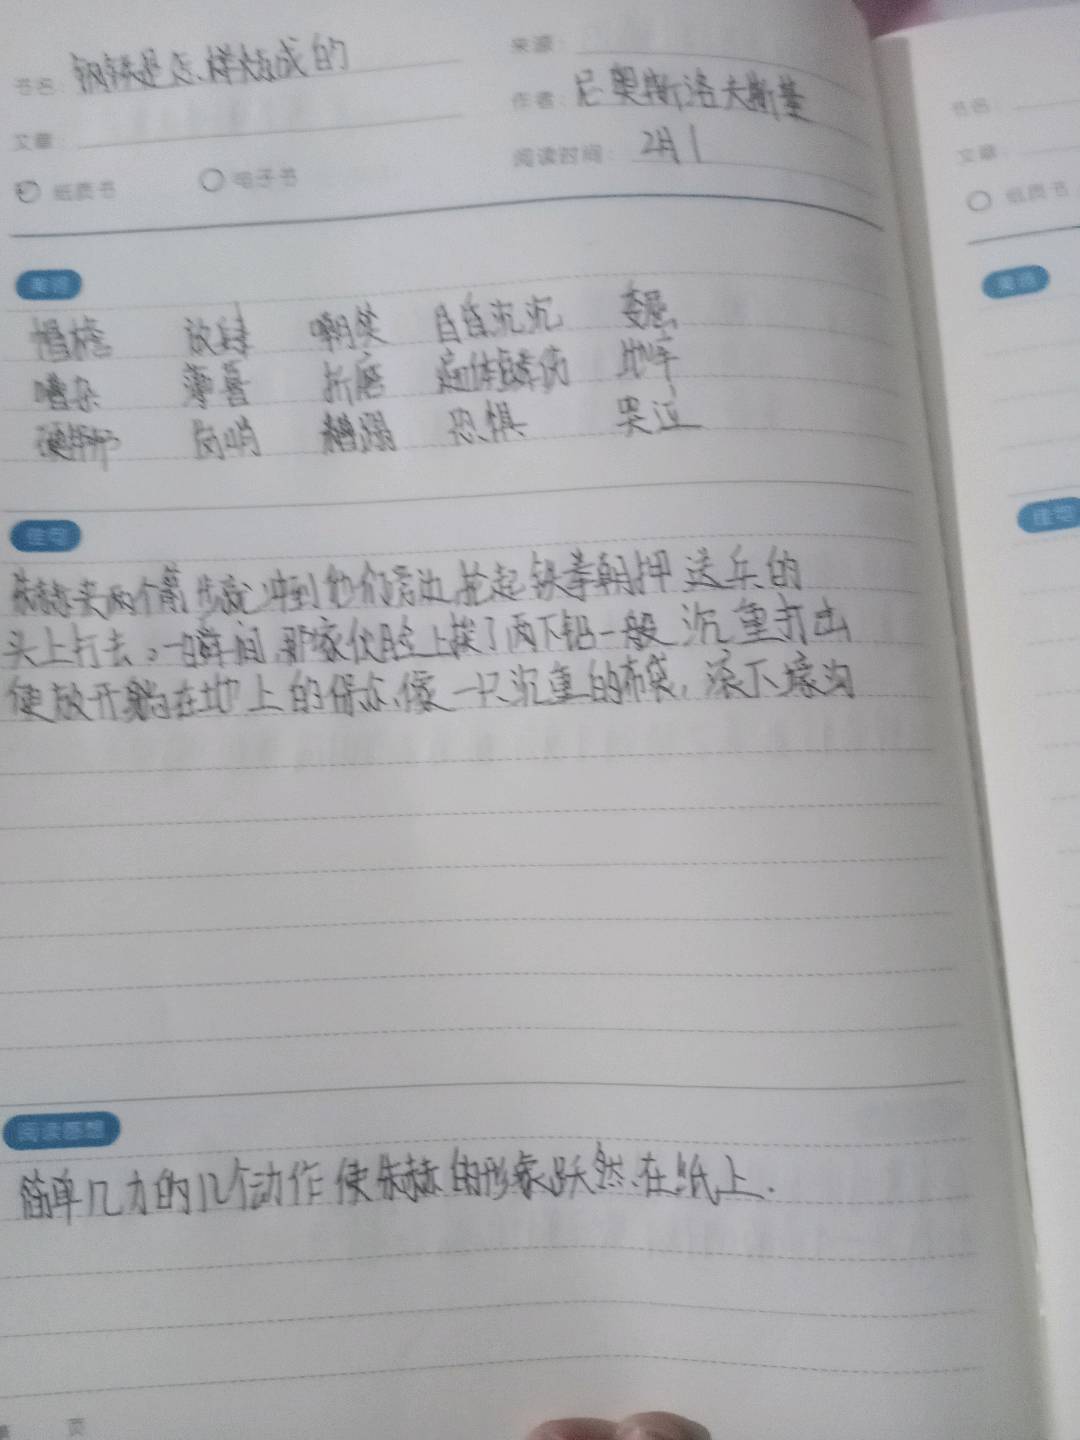 书名：钢铁是怎样炼成的
来源：
作者：尼·奥斯洛夫斯基
文章：
阅读时间：2月1
纸质书 电子书
美词
放肆 嘲笑 昏昏沉沉 委屈
嘈杂 薄暮 折磨 遍体鳞伤
硬绑绑 岗哨 糟蹋 恐惧 哭泣
佳句
朱赫来两个箭步就冲到他们旁边,抡起铁拳朝押送兵的
头上打去。一瞬间,那家伙脸上挨了两下铅一般沉重打击
便放开躺在地上的保尔,像一只沉重的布袋,滚下壕沟
阅读感想
简单几力的几个动作使朱赫的形象跃然在纸上.
页
书名：
文章：
纸质书
美词
佳句